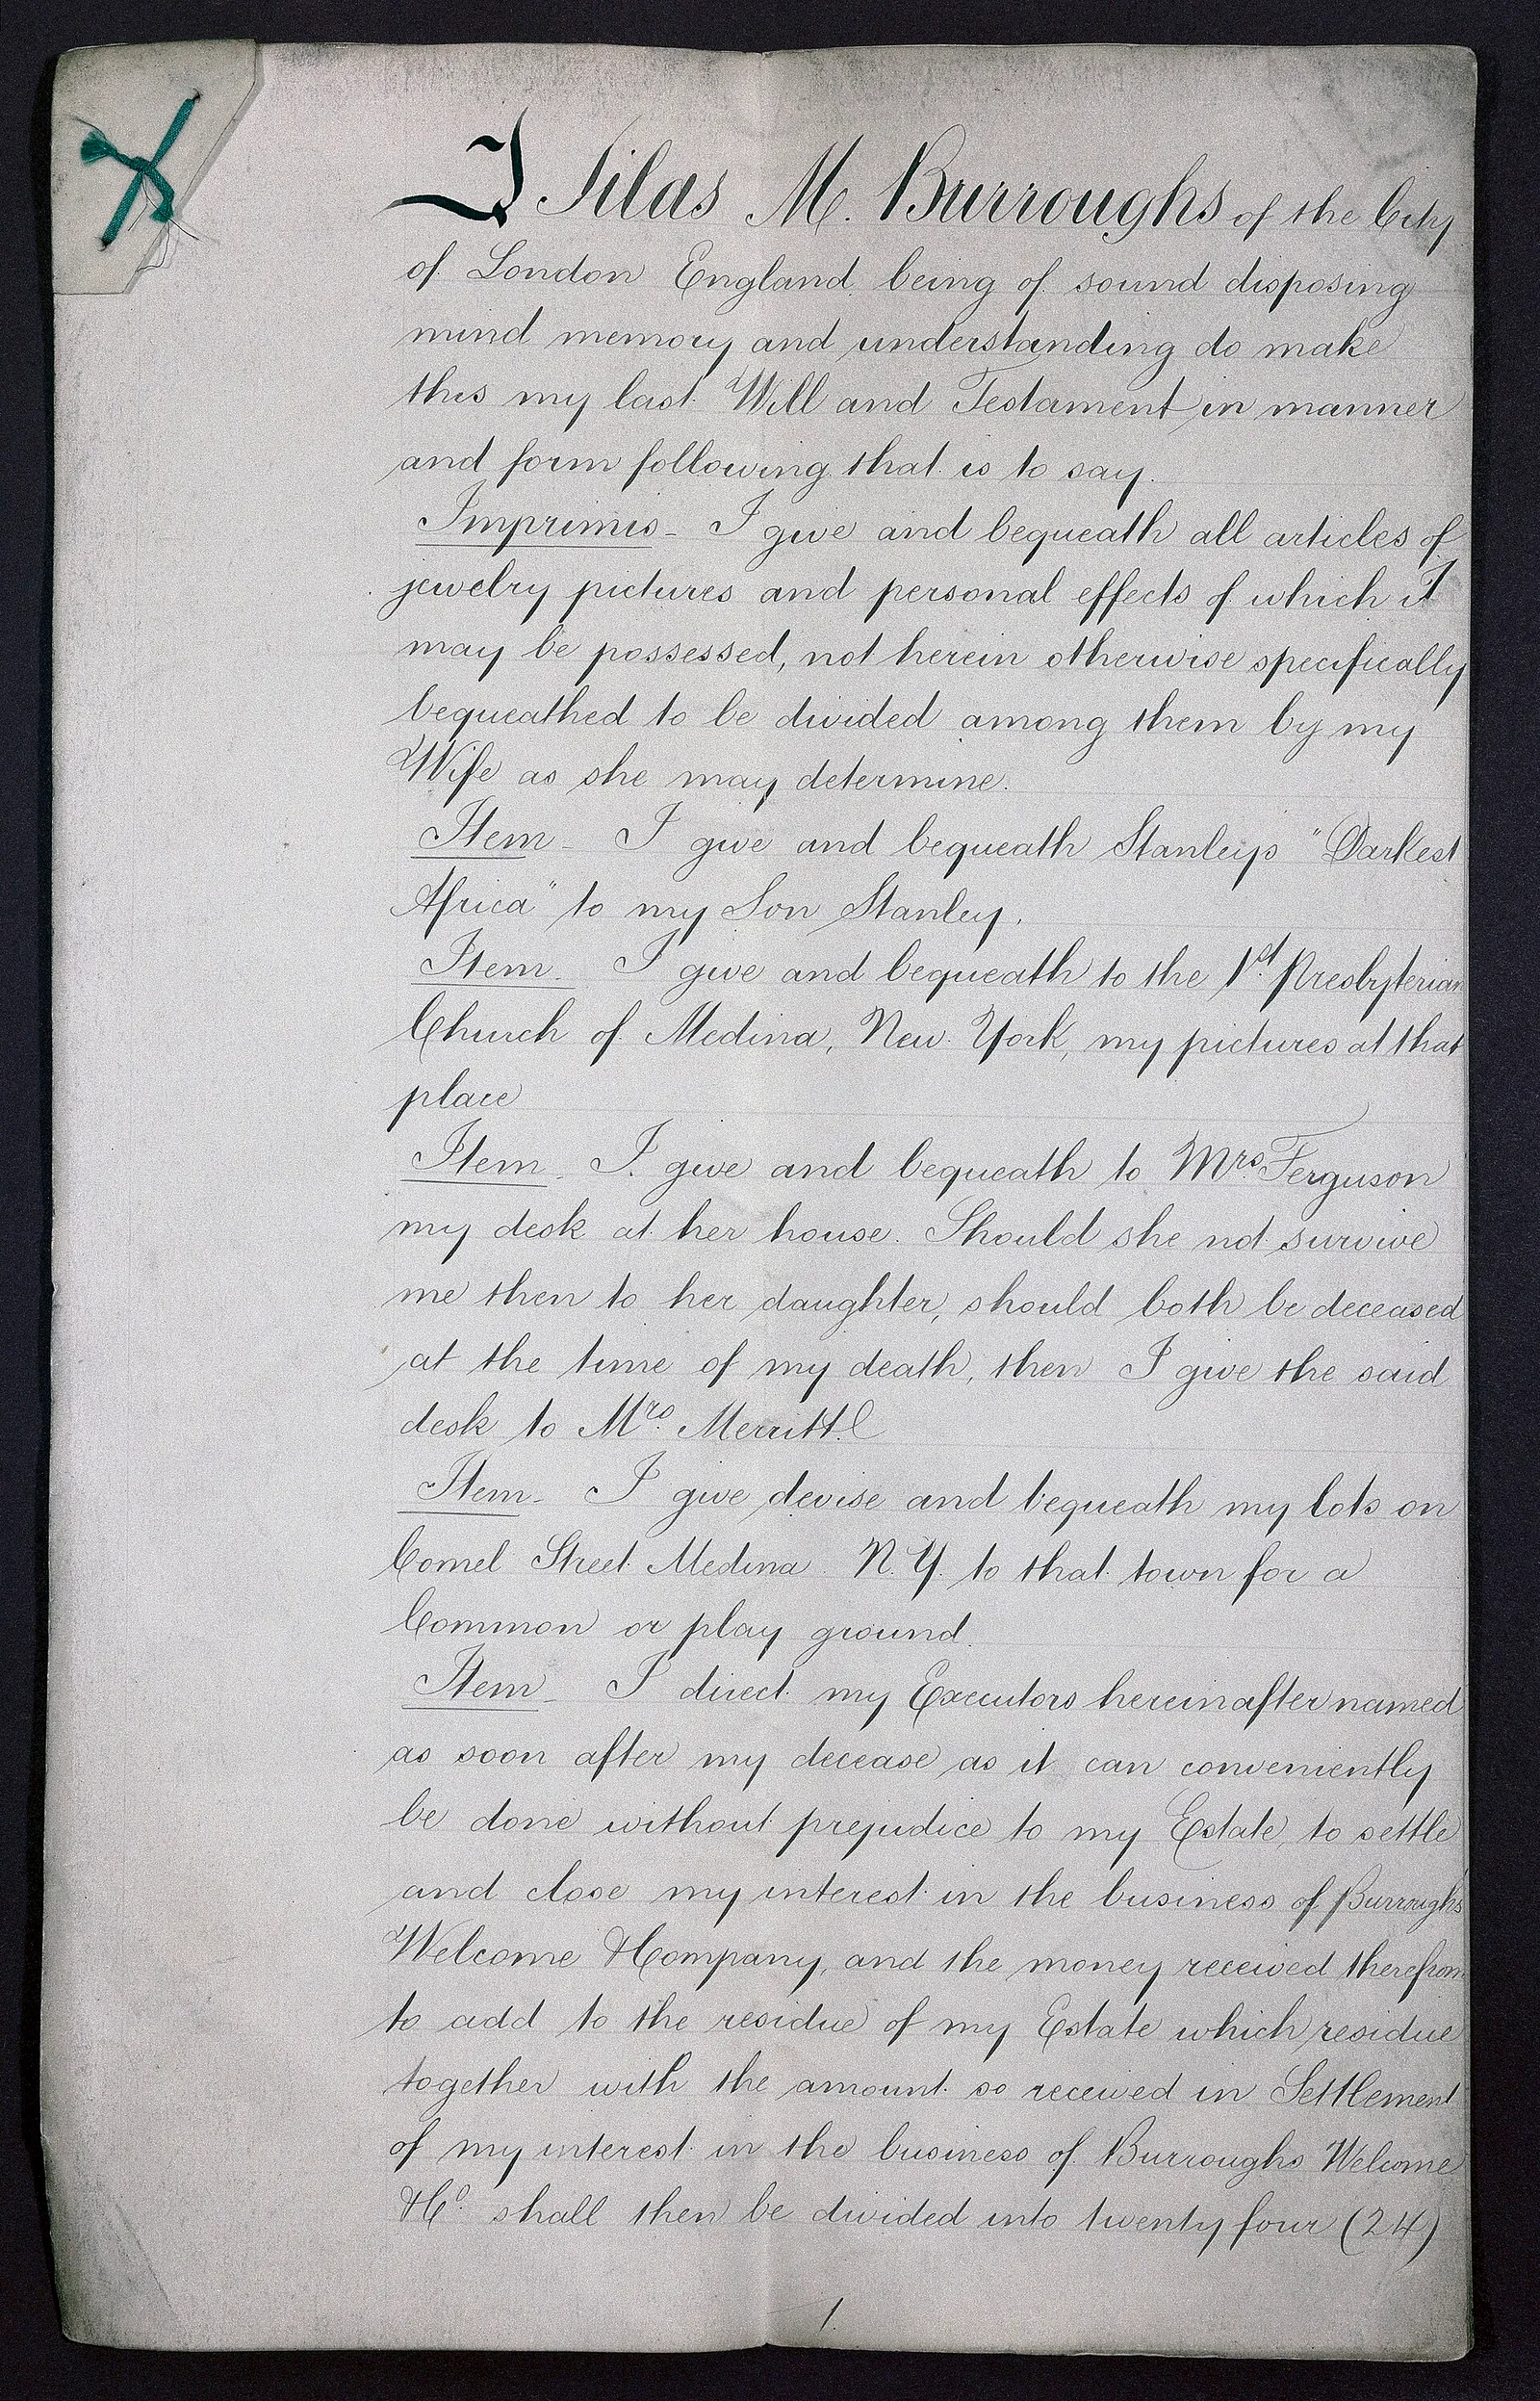 I Silas M. Burroughs of the City
of London England being of sound disposing
mind memory and understanding do make
this my last Will and Testament in manner
and form following that is to say.
Imprimis - I give and bequeath all articles of
jewelry pictures and personal effects of which I
may be possessed, not herein otherwise specifically
bequeathed to be divided among them by my
Wife as she may determine.
Item - I give and bequeath Stanleys "Darkest
Africa" to my Son Stanley.
Item. I give and bequeath to the 1st Presbyterian
Church of Medina, New York, my pictures at that
place
Item. I give and bequeath to Mrs. Ferguson
my desk at her house. Should she not survive
me then to her daughter, should both be deceased
at the time of my death, then I give the said
desk to Mrs. Merritt
Item - I give devise and bequeath my lots on
Comel Street Medina N.Y. to that town for a
Common or play ground.
Item - I direct my Executors hereinafter named
as soon after my decease as it can conveniently
be done without prejudice to my Estate, to settle
and close my interest in the business of Burroughs
Welcome & Company, and the money received therefrom
to add to the residue of my Estate which residue
together with the amount so received in Settlement
of my interest in the business of Burroughs Welcome
& Co. shall then be divided into twenty four (24)
1.